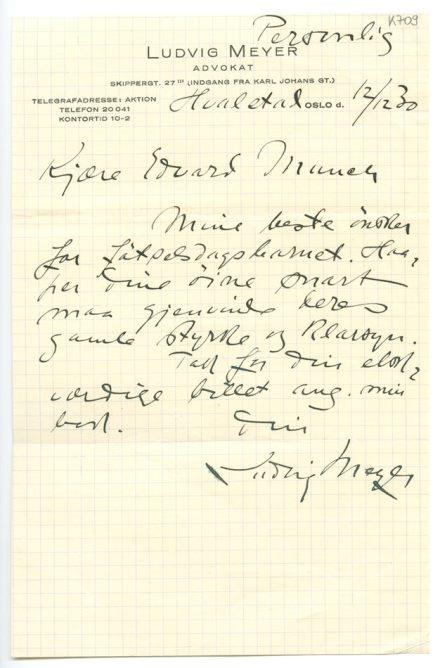 K 709
Personlig
LUDVIG MEYER
ADVOKAT
SKIPPERGT. 27 III (INDGANG FRA KARL JOHANS GT.)
TELEGRAFADRESSE: AKTION
TELEFON 20041
KONTORTID 10-2
Hvalstad OSLO d. 12/12 30
Kjære Edvard Munch
Mine beste önsker
for födselsdagsbarnet. Haa-
per dine öine snart
maa gjenvinde deres
gamle styrke og klarsyn.
Takk for din elsk-
værdige billet ang. min
bok.
Din
Ludvig Meyer